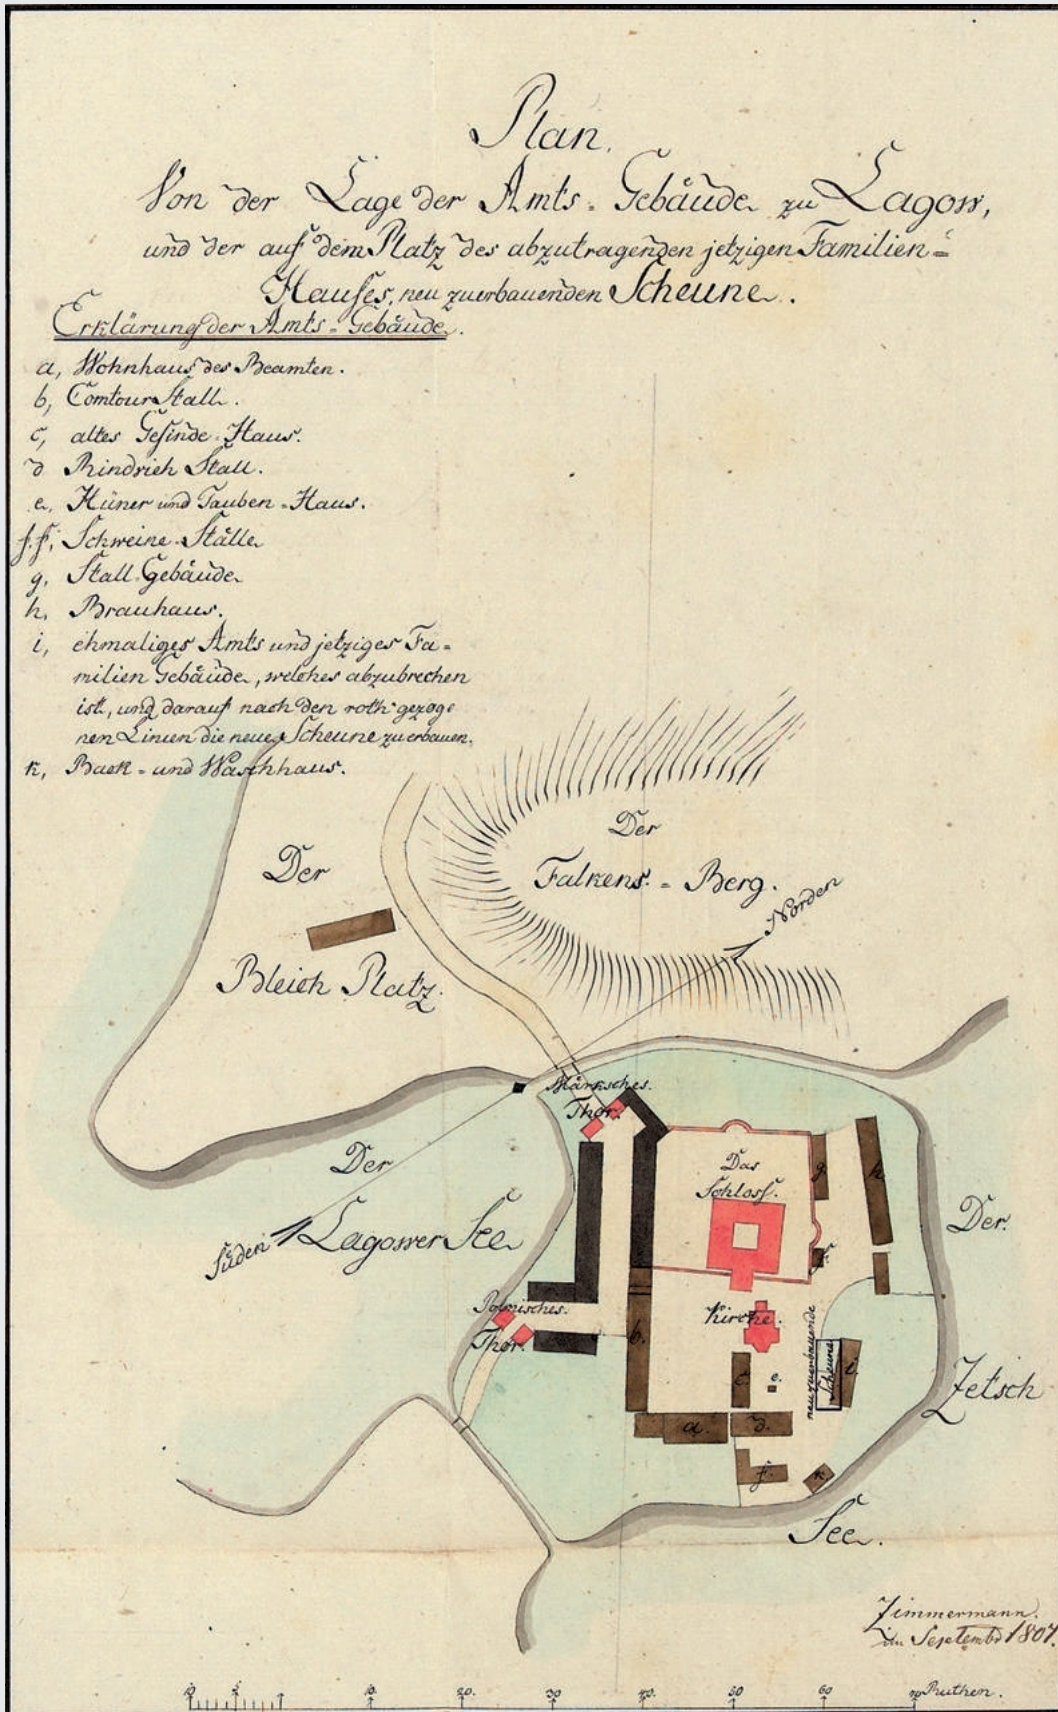 Plan.
Von der Lage der Amts-Gebäude zu Lagow,
und der auf dem Platz des abzutragenden jetzigen Familien=
Hauses, neu zuerbauenden Scheune.
Erklärung der Amts=Gebäude.
a, Wohnhaus des Beamten.
b, Comtour Stall.
c, altes Gesinde-Haus.
d Rindvieh Stall.
e, Hüner und Tauben-Haus.
f.f, Schweine-Ställe
g, Stall-Gebäude
h, Brauhaus.
i, ehmaliges Amts und jetziges Fa-
milien Gebäude, welches abzubrechen
ist, und darauf nach den roth gezoge
nen Linien die neue Scheune zu erbauen.
k, Back- und Waschhaus.
Der
Falkens=Berg.
Der
Bleich Platz.
Norden
Märksches.
Thor.
Das
Schloss.
g
h
Der
Lagower See
Süden
f.
Der
Zetsch
See.
Polnisches.
Thor.
Kirche.
b.
c
e.
neuzuerbauende
Scheune
i.
a.
d.
f.
k.
Zimmermann.
im Septembr 1807.
10 5 10. 20. 30 40. 50 60 70 Ruthen.